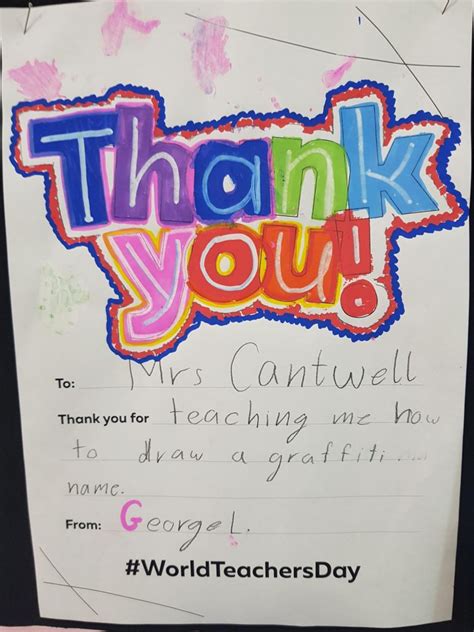 Thank
you!
To: Mrs Cantwell
Thank you for teaching me how
to draw a graffiti
name.
From: George L.
#WorldTeachersDay